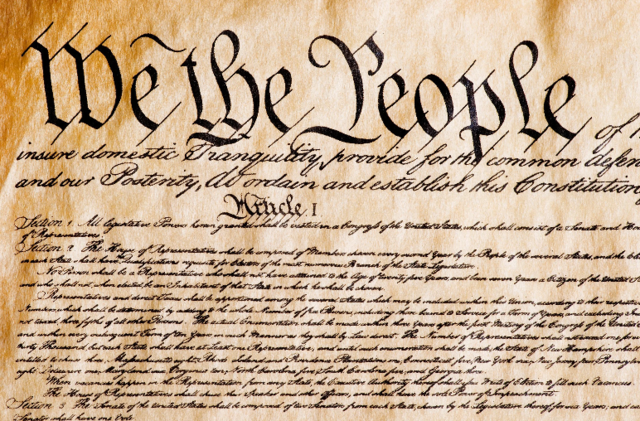 We the People of
insure domestic Tranquility, provide for the common defen
and our Posterity, do ordain and establish this Constitution
Article I
Section 1. All legislative Powers herein granted shall be vested in a Congress of the United States, which shall consist of a Senate and Hou
of Representatives.
Section 2. The House of Representatives shall be composed of Members chosen every second Year by the People of the several States, and the
in each State shall have Qualifications requisite for Electors of the most numerous Branch of the State Legislature.
No Person shall be a Representative who shall not have attained to the Age of twenty five Years, and been seven Years a Citizen of the United
and who shall not, when elected, be an Inhabitant of that State in which he shall be chosen.
Representatives and direct Taxes shall be apportioned among the several States which may be included within this Union, according to their
Numbers, which shall be determined by adding to the whole Number of free Persons, including those bound to Service for a Term of Years, and excluding
not taxed, three fifths of all other Persons. The actual Enumeration shall be made within three Years after the first Meeting of the Congress of the United
and within every subsequent Term of ten Years, in such Manner as they shall by Law direct. The Number of Representatives shall not exceed one for
thirty Thousand, but each State shall have at Least one Representative; and until such enumeration shall be made, the State of New Hampshire shall
entitled to chuse three, Massachusetts eight, Rhode Island and Providence Plantations one, Connecticut five, New York six, New Jersey four, Pennsylvan
eight, Delaware one, Maryland six, Virginia ten, North Carolina five, South Carolina five, and Georgia three.
When vacancies happen in the Representation from any State, the Executive Authority thereof shall issue Writs of Election to fill such Vacancies.
The House of Representatives shall chuse their Speaker and other Officers; and shall have the sole Power of Impeachment.
Section 3. The Senate of the United States shall be composed of two Senators from each State, chosen by the Legislature thereof, for six Years; and
Senator shall have one Vote.